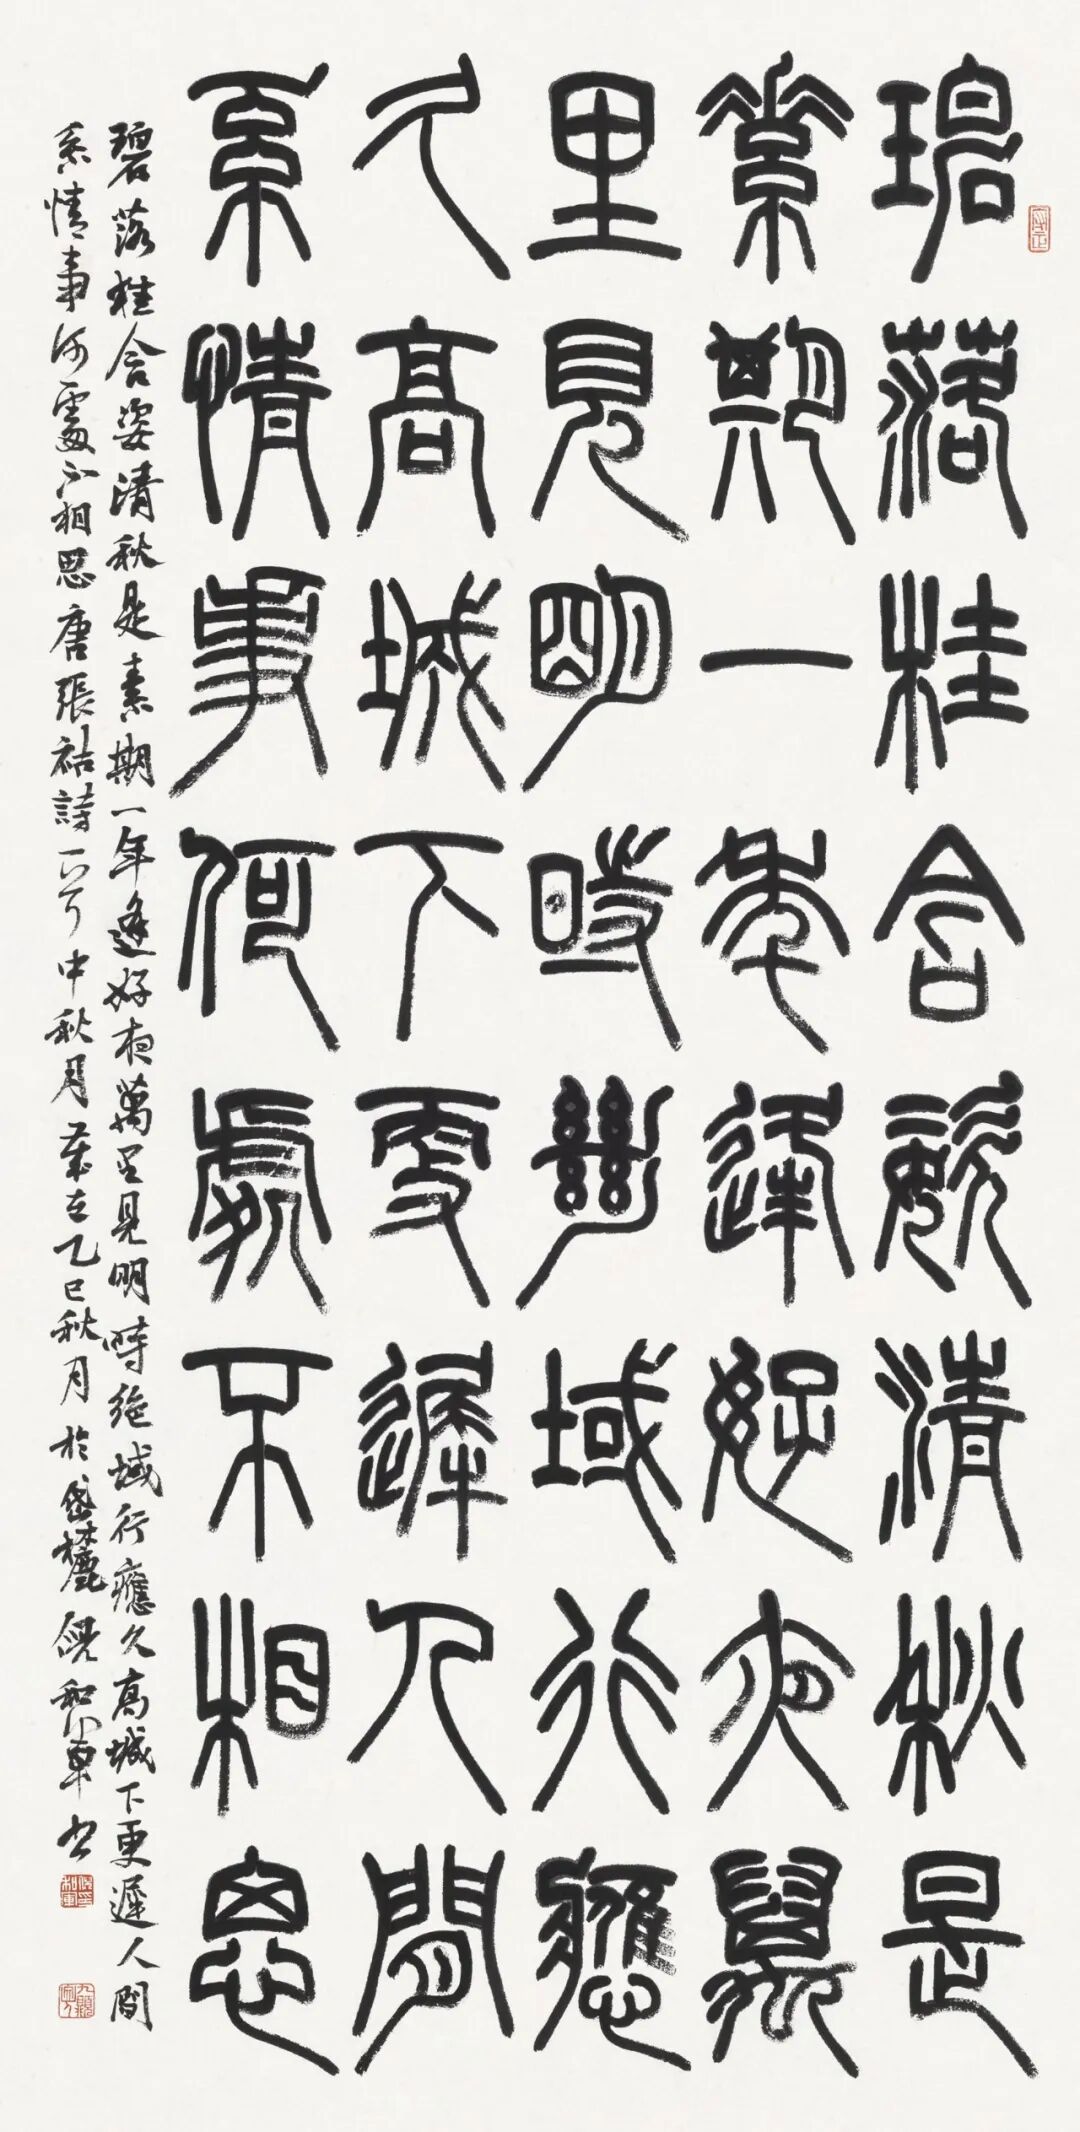 碧落桂含姿清秋是
素期一年逢好夜萬
里見明時絕域行應
久高城下更遲人間
系情事何處不相思
碧落桂含姿清秋是素期一年逢好夜萬里見明時絕域行應久高城下更遲人間
系情事何處不相思唐張祜詩一首中秋月歲在乙巳秋月於岱麓倪和軍書